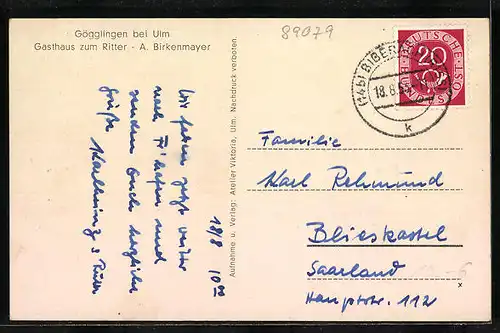 Gögglingen bei Ulm
Gasthaus zum Ritter - A. Birkenmayer
89079
DEUTSCHE BUNDESPOST
20
(14b) BIBERA
18.8.5
k
18/8 10⁰⁰
Wir fahren jetzt weiter
nach F'hafen und
senden Euch herzliche
Grüße
Aufnahme u. Verlag: Atelier Viktoria, Ulm. Nachdruck verboten.
Familie
Karl Rehmund
Blieskastel
Saarland
Hauptstr. 112
x